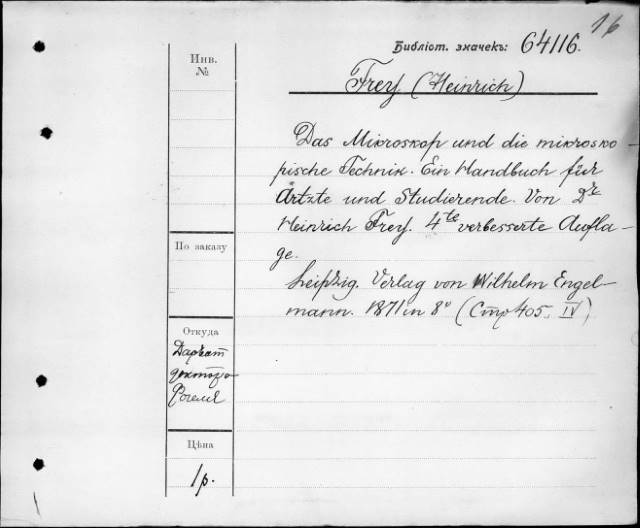 16
Библіот. значекъ: 64116.
Инв.
№
Frey (Heinrich)
Das Mikroskop und die mikrosko-
pische Technik. Ein Handbuch für
Ärtzte und Studierende. Von Dr
Heinrich Frey. 4te verbesserte Aufla-
ge.
Leipzig. Verlag von Wilhelm Engel-
mann. 1871 in 8° (Стр 405. IV)
По заказу
Откуда
доктора
Цѣна
1р.